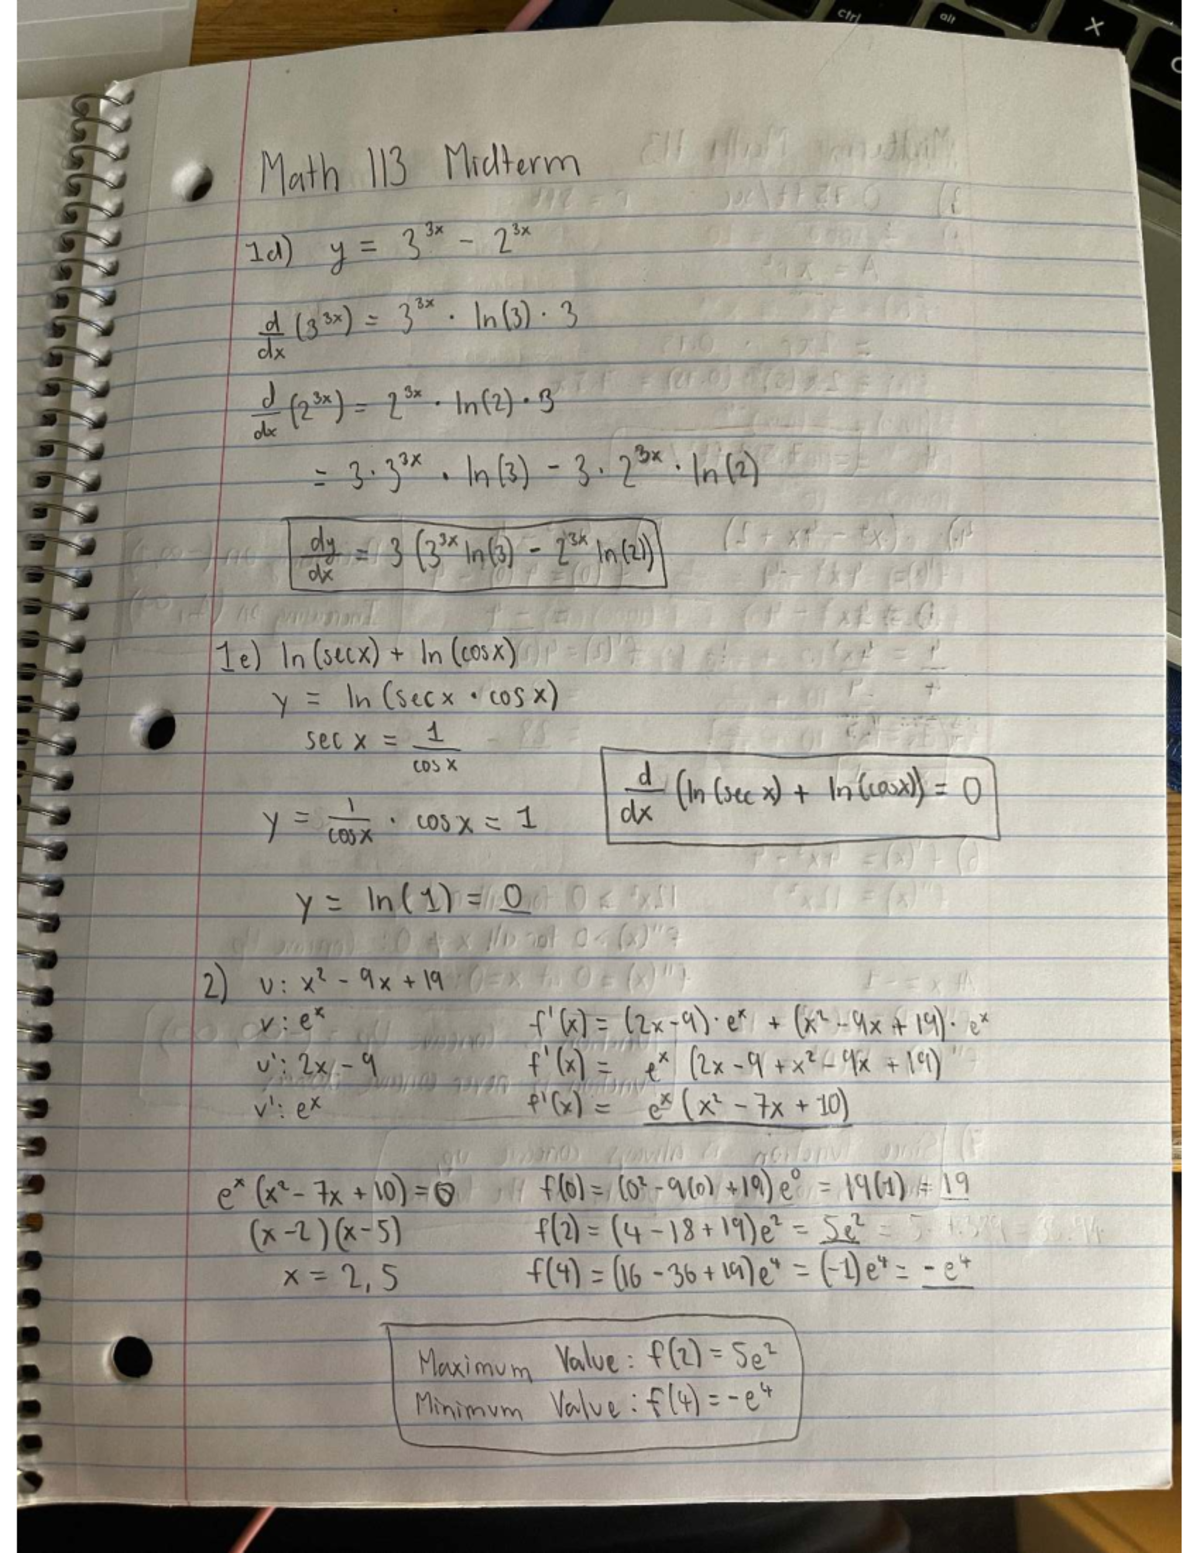 ctrl
alt
X
Math 113 Midterm
1d) y = 3^3x - 2^3x
d/dx (3^3x) = 3^3x · ln(3) · 3
d/dx (2^3x) = 2^3x · ln(2) · 3
= 3 · 3^3x · ln(3) - 3 · 2^3x · ln(2)
dy/dx = 3 (3^3x ln(3) - 2^3x ln(2))
1e) ln(secx) + ln(cosx)
y = ln(secx · cosx)
sec x = 1/cos x
d/dx (ln(sec x) + ln(cosx)) = 0
y = 1/cosx · cosx = 1
y = ln(1) = 0
2) u: x² - 9x + 19
v: e^x f'(x) = (2x-9) · e^x + (x² - 9x + 19) · e^x
u': 2x - 9 f'(x) = e^x (2x - 9 + x² - 9x + 19)
v': e^x f'(x) = e^x (x² - 7x + 10)
e^x (x² - 7x + 10) = 0 f(0) = (0² - 9(0) + 19)e^0 = 19(1) = 19
(x-2)(x-5) f(2) = (4 - 18 + 19)e² = 5e²
x = 2, 5 f(4) = (16 - 36 + 19)e⁴ = (-1)e⁴ = -e⁴
Maximum Value: f(2) = 5e²
Minimum Value: f(4) = -e⁴